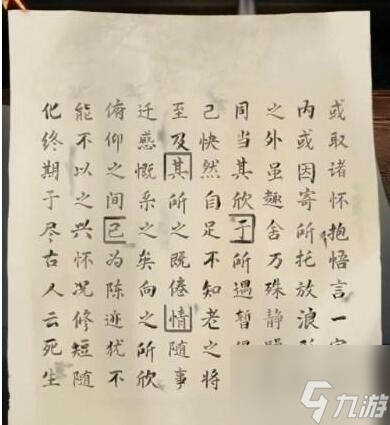 或取诸怀抱悟言一
内或因寄所托放浪
之外虽趣舍万殊静躁
同当其欣于所遇暂
己快然自足不知老之将
至及其所之既倦情随事
迁感慨系之矣向之所欣
俯仰之间已为陈迹犹不
能不以之兴怀况修短随
化终期于尽古人云死生
九游